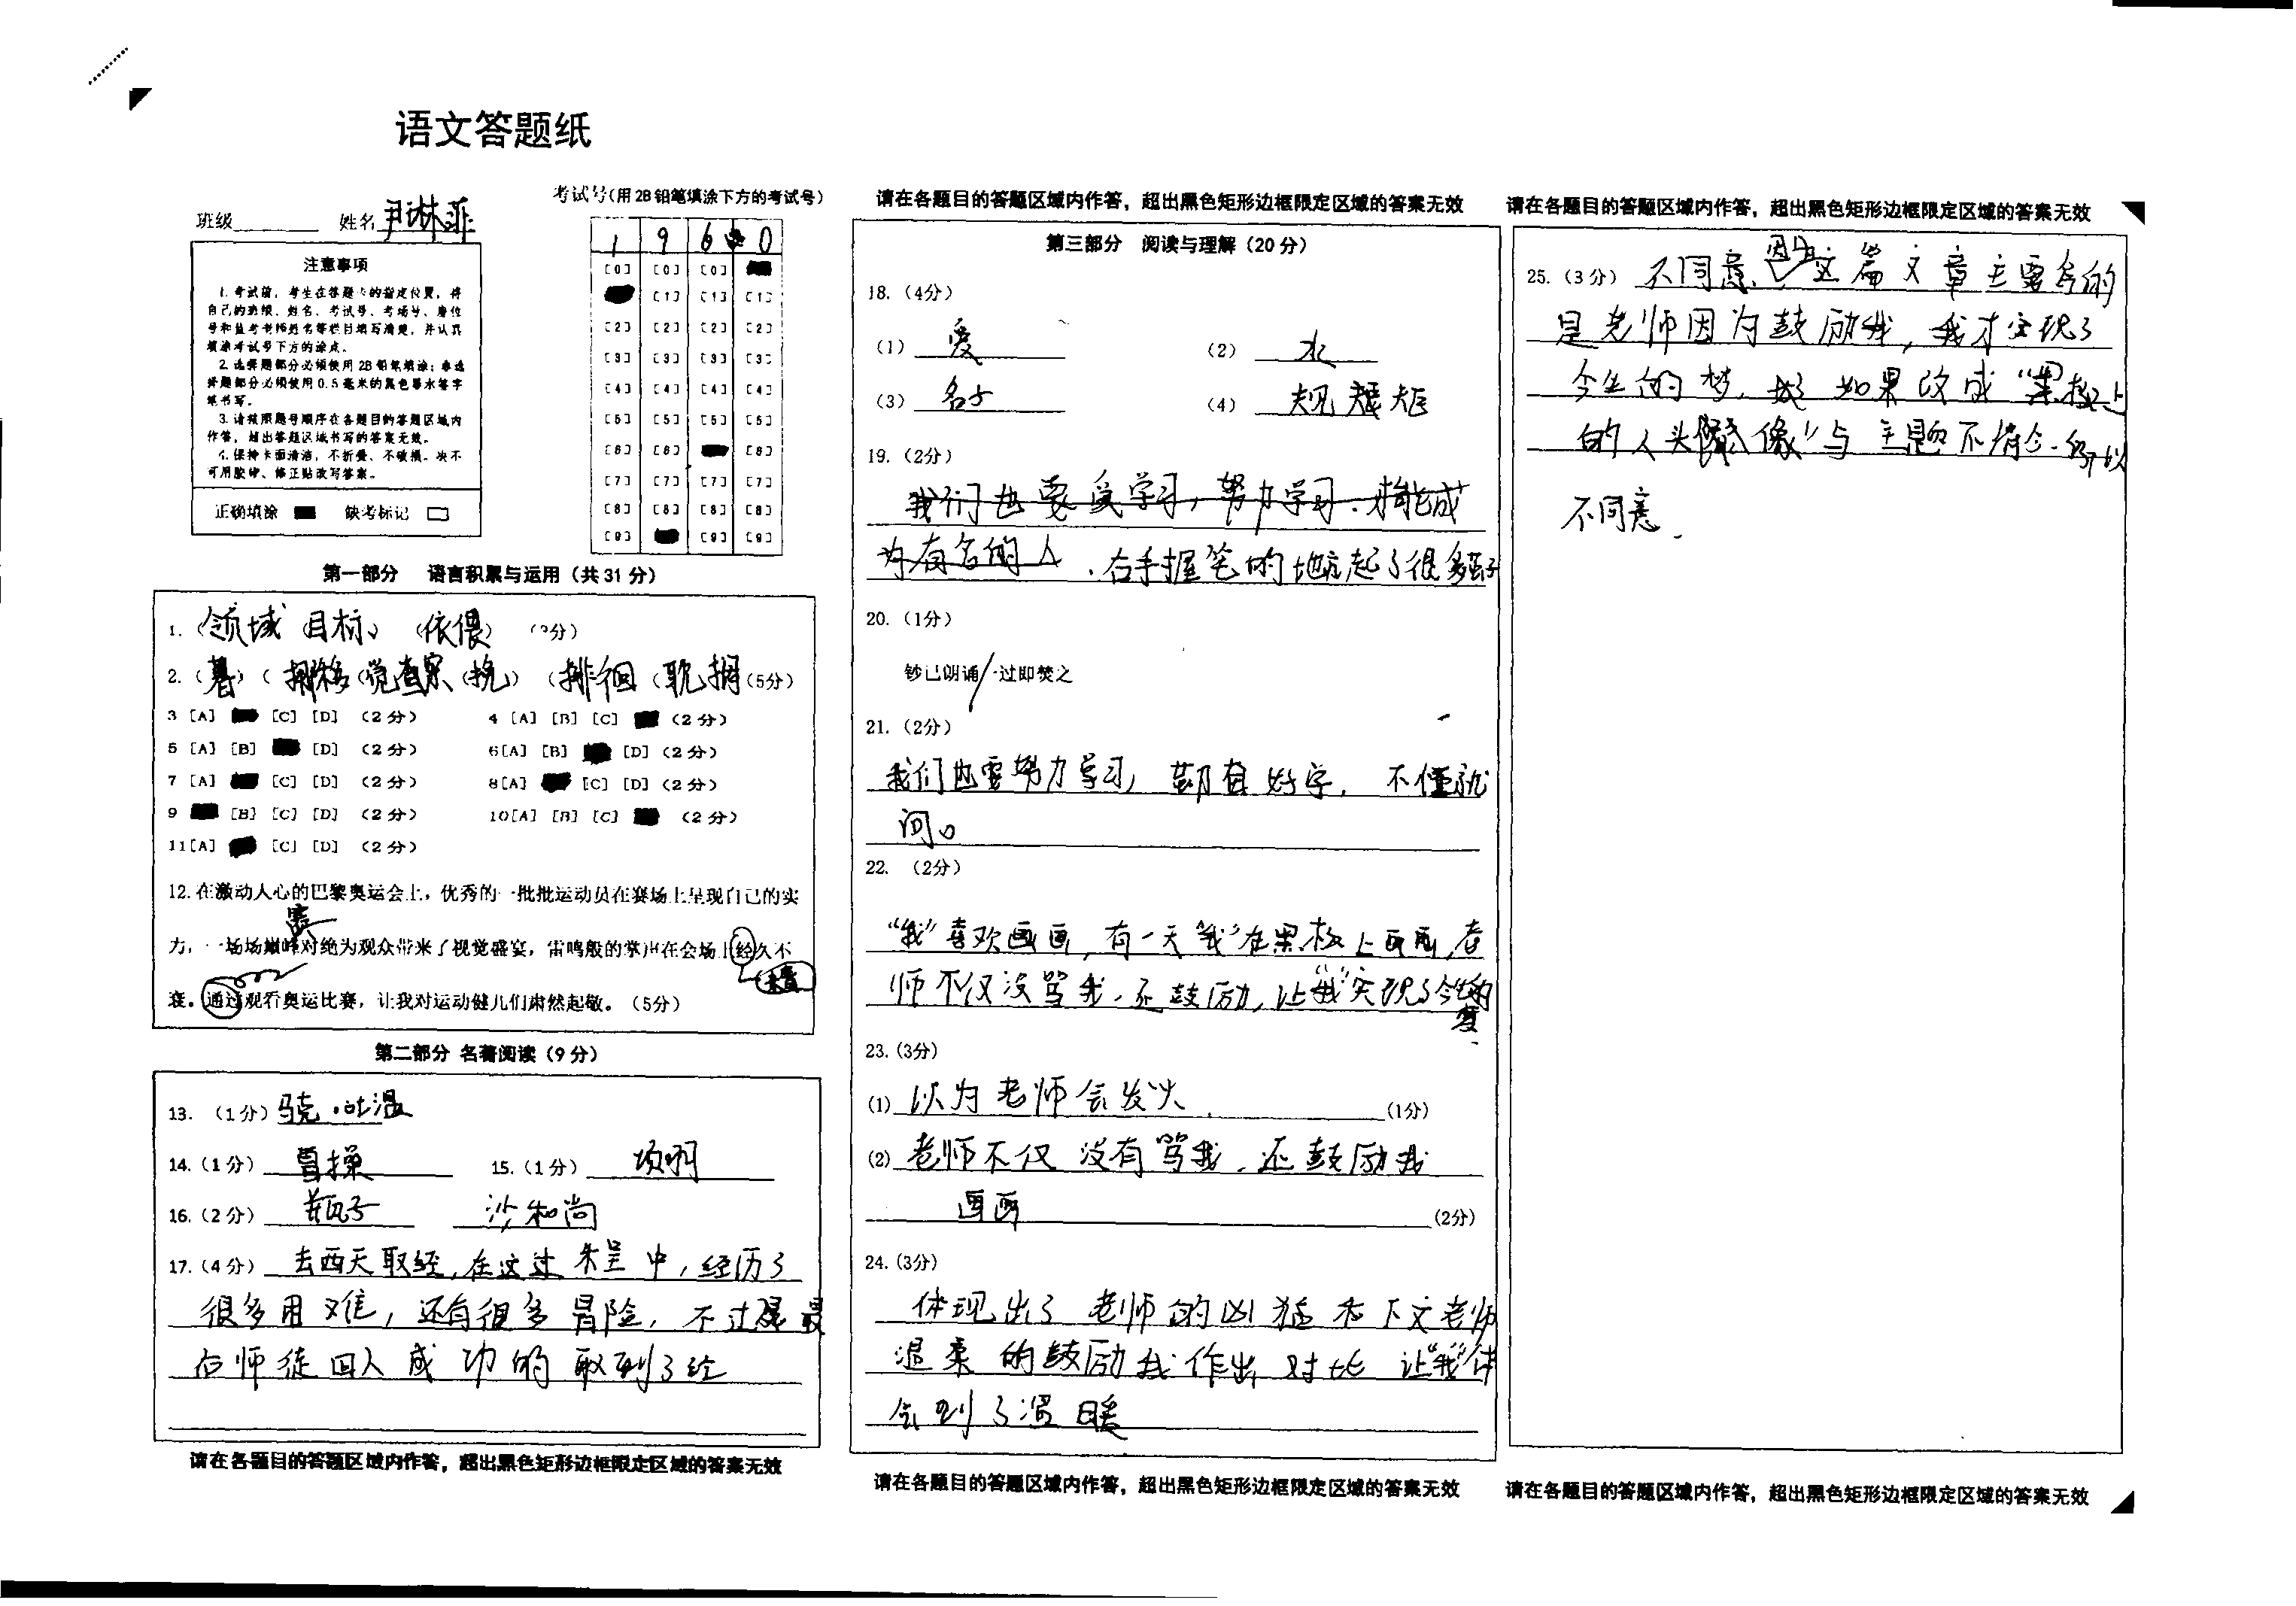 语文答题纸
班级 姓名 尹琳菲
考试号(用2B铅笔填涂下方的考试号)
1 9 6 0
注意事项
1. 考试前，考生在答题卡的指定位置，将
自己的班级、姓名、考试号、考场号、座位
号和监考老师姓名等栏目填写清楚，并认真
填涂考试号下方的涂点。
2. 选择题部分必须使用2B铅笔填涂；非选
择题部分必须使用0.5毫米的黑色墨水签字
笔书写。
3. 请按照题号顺序在各题目的答题区域内
作答，超出答题区域书写的答案无效。
4. 保持卡面清洁，不折叠、不破损。决不
可用胶带、修正贴改写答案。
正确填涂 缺考标记
[0] [0] [0]
[1] [1] [1]
[2] [2] [2] [2]
[3] [3] [3] [3]
[4] [4] [4] [4]
[5] [5] [5] [5]
[6] [6] [6]
[7] [7] [7] [7]
[8] [8] [8] [8]
[9] [9] [9]
第一部分 语言积累与运用（共31分）
1. (领域 目标) (依偎)
2. (暮) ( (觉察 (挠) (徘徊 (耽搁 (5分)
3 [A] [C] [D] (2分) 4 [A] [B] [C] (2分)
5 [A] [B] [D] (2分) 6[A] [B] [D] (2分)
7 [A] [C] [D] (2分) 8[A] [C] [D] (2分)
9 [B] [C] [D] (2分) 10[A] [B] [C] (2分)
11[A] [C] [D] (2分)
12. 在激动人心的巴黎奥运会上，优秀的一批批运动员在赛场上呈现自己的实
力，一场场巅峰对绝为观众带来了视觉盛宴，雷鸣般的掌声在会场上经久不
衰。通过观看奥运比赛，让我对运动健儿们肃然起敬。（5分）
第二部分 名著阅读（9分）
13. （1分）骁·吐温
14.（1分） 曹操 15.（1分）
16.（2分） 瓶子 沙和尚
17.（4分） 去西天取经,在这过 中，经历了
很多困难，还有很多冒险，不过 最
后师徒四人成功的取到了经
请在各题目的答题区域内作答，超出黑色矩形边框限定区域的答案无效
请在各题目的答题区域内作答，超出黑色矩形边框限定区域的答案无效
第三部分 阅读与理解（20分）
18.（4分）
(1) 爱 (2) 水
(3) 名子 (4) 规矩
19.（2分）
我们也要爱学习，努力学习.才能成
为有名的人.右手握笔的地方起了很多茧子
20.（1分）
钞已朗诵/一过即焚之
21.（2分）
我们也要努力学习，勤奋好学.不懂就
问。
22. （2分）
“我”喜欢画画,有一天“我”在黑板上画画,老
师不仅没骂我.还鼓励,让“我”实现了今生的
梦.
23.(3分)
(1) 以为老师会发火. (1分)
(2) 老师不仅没有骂我.还鼓励我
画画 (2分)
24.(3分)
体现出了老师的凶猛和下文老师
温柔的鼓励我作出对比 让“我”体
会到了温暖
请在各题目的答题区域内作答，超出黑色矩形边框限定区域的答案无效
请在各题目的答题区域内作答，超出黑色矩形边框限定区域的答案无效
25.（3分） 不同意.因为这篇文章主要写的
是老师因为鼓励我，我才实现了
今生的梦. 如果改成“黑板上
的人头像”与主题不符合.所以
不同意.
请在各题目的答题区域内作答，超出黑色矩形边框限定区域的答案无效